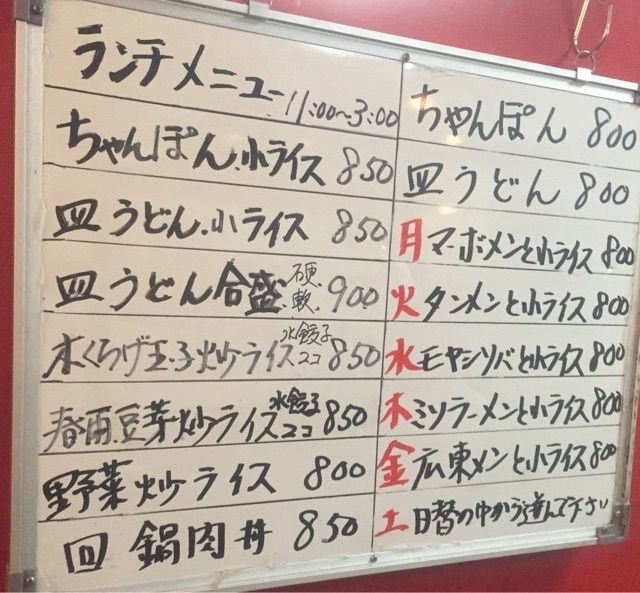 ランチメニュー 11:00〜3:00
ちゃんぽん.小ライス 850
皿うどん.小ライス 850
皿うどん合盛 硬.軟. 900
木くらげ玉子炒ライス 水餃子2コ 850
春雨.豆芽炒ライス 水餃子2コ 850
野菜炒ライス 800
回鍋肉丼 850
ちゃんぽん 800
皿うどん 800
月 マーボメンと小ライス 800
火 タンメンと小ライス 800
水 モヤシソバと小ライス 800
木 ミソラーメンと小ライス 800
金 広東メンと小ライス 800
土 日替の中から選んで下さい